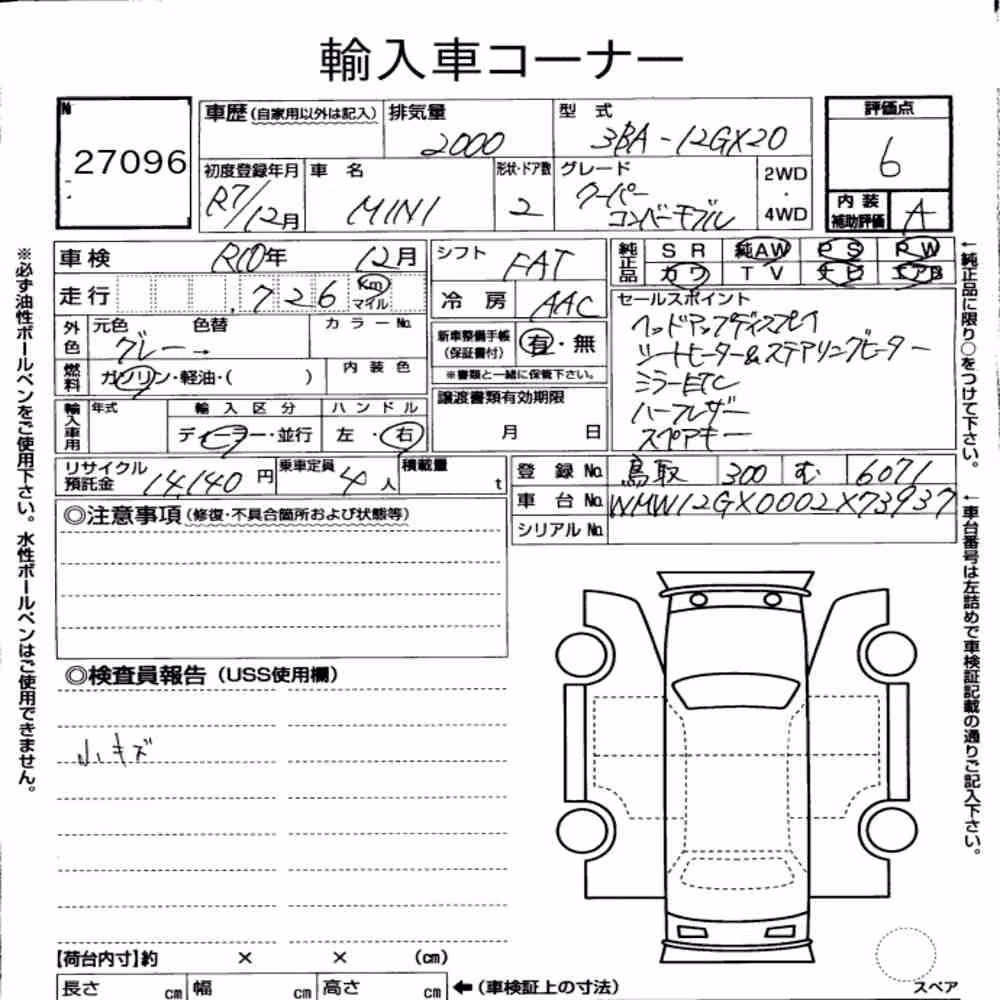 輸入車コーナー
No
27096
車歴(自家用以外は記入)
排気量
2000
型 式
3BA-12GX20
評価点
6
初度登録年月
R7/12月
車 名
MINI
形状・ドア数
2
グレード
クーパー
コンバーチブル
2WD
・
4WD
内 装
補助評価
A
車検
R10年 12月
シフト
FAT
純正品
SR 純AW PS RW
カワ TV ナビ エアB
走行
726
km
マイル
冷 房
AAC
セールスポイント
ヘッドアップディスプレイ
シートヒーター&ステアリングヒーター
ミラーETC
ハーフレザー
スペアキー
外色
元色 色替
グレー→
カラーNo.
新車整備手帳
(保証書付)
有・無
※書類と一緒に保管下さい。
燃料
ガソリン・軽油・( )
内 装 色
譲渡書類有効期限
月 日
輸入車用
年式
輸 入 区 分
ディーラー・並行
ハ ン ド ル
左・右
リサイクル
預託金
14,140円
乗車定員
4人
積載量
t
登 録 No.
鳥取 300 む 6071
車 台 No.
WMW12GX0002X73937
シリアル No.
◎注意事項(修復・不具合箇所および状態等)
◎検査員報告(USS使用欄)
小キズ
【荷台内寸】約 × × (cm)
長さ cm 幅 cm 高さ cm
←(車検証上の寸法)
スペア
※必ず油性ボールペンをご使用下さい。水性ボールペンはご使用できません。
←純正品に限り○をつけて下さい。
←車台番号は左詰めで車検証記載の通りご記入下さい。